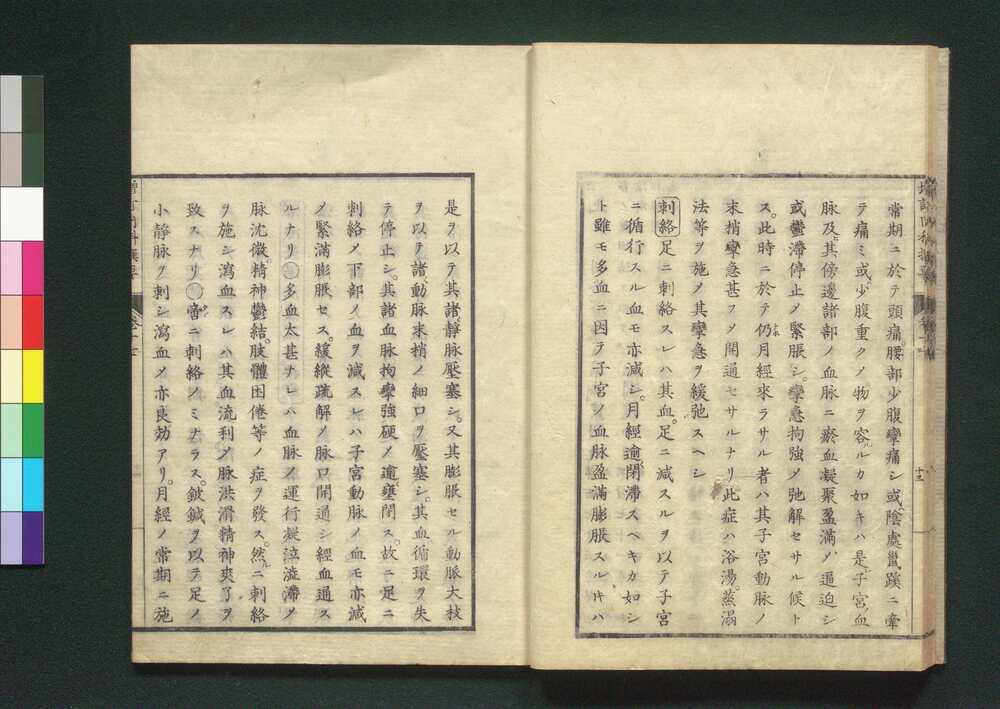 常期ニ於テ頭痛腰部少腹攣痛シ或陰處鼠蹊ニ牽
テ痛ミ或少腹重クメ物ヲ容ルカ如キハ是子宮血
脉及其傍邊諸部ノ血脉ニ瘀血凝聚盈滿メ逼迫シ
或鬱滯停止メ緊脹シ。攣急拘強メ弛解セサル候ト
ス。此時ニ於テ仍月經來ラサル者ハ其子宮動脉ノ
末梢攣急甚フメ開通セサルナリ此症ハ浴湯。蒸溻
法等ヲ施メ其攣急ヲ緩弛スヘシ
刺絡足ニ刺絡スレハ其血。足ニ減スルヲ以テ子宮
ニ循行スル血モ亦減シ。月經逾閉滯スヘキカ如シ
ト雖モ多血ニ因テ子宮ノ血脉盈滿膨脹スルキハ
十三
是ヲ以テ其諸靜脉壓塞シ。又其膨脹セル動脈大枝
ヲ以テ諸動脉末梢ノ細口ヲ壓塞シ。其血循環ヲ失
テ停止シ。其諸血脉拘攣強硬メ逾壅閉ス。故ニ足ニ
刺絡メ下部ノ血ヲ減スレハ子宮動脉ノ血モ亦減
メ緊滿膨脹セス。緩縱疏解メ脉口開通シ經血通ス
ルナリ○多血太甚ナレハ血脉ノ運行凝泣澁滯メ
脉沈微。精神鬱結。肢體困倦等ノ症ヲ發ス。然ニ刺絡
ヲ施シ瀉血スレハ其血流利メ脉洪滑精神爽了ヲ
致スナリ○啻ニ刺絡ノミナラス。鈹鍼ヲ以テ足ノ
小靜脉ヲ刺シ瀉血メ亦良効アリ。月經ノ常期ニ施